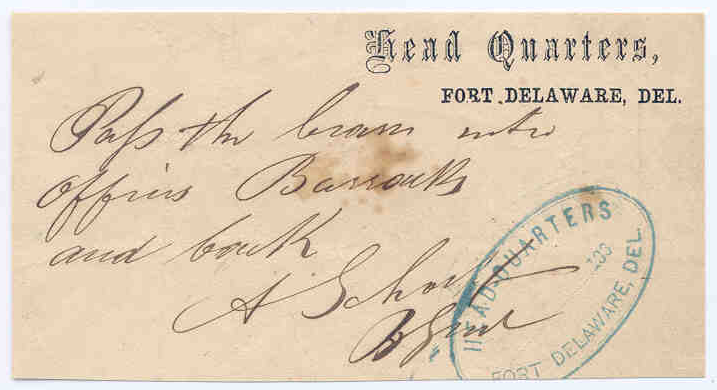 Head Quarters,
FORT DELAWARE, DEL.
Pass the
into
Officers Barracks
and back
A
HEAD-QUARTERS
FORT DELAWARE, DEL.